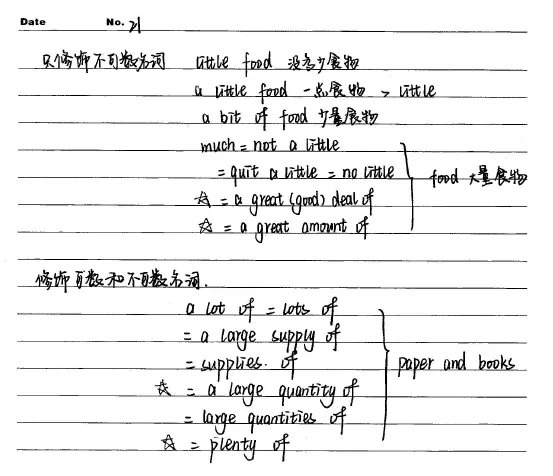 Date No. 21
只修饰不可数名词 little food 没多少食物
a little food 一点食物 > little
a bit of food 少量食物
much = not a little
= quit a little = no little
☆ = a great (good) deal of
☆ = a great amount of
food 大量食物
修饰可数和不可数名词.
a lot of = lots of
= a large supply of
= supplies. of
☆ = a large quantity of
= large quantities of
☆ = plenty of
paper and books